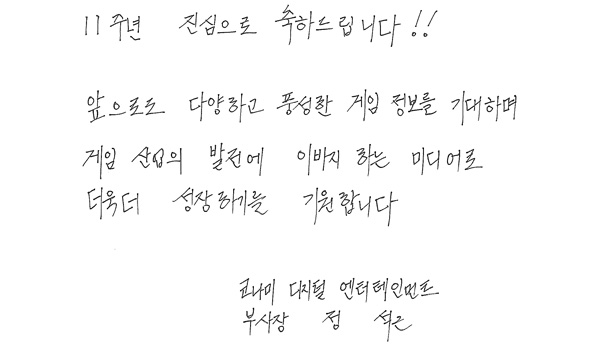 11주년 진심으로 축하드립니다!!
앞으로도 다양하고 풍성한 게임 정보를 기대하며
게임 산업의 발전에 이바지 하는 미디어로
더욱더 성장하기를 기원합니다
코나미 디지털 엔터테인먼트
부사장 정 석근